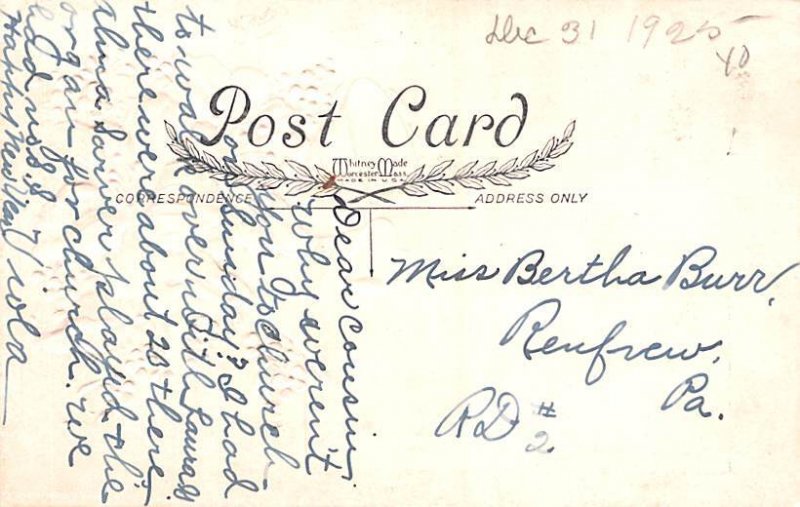 Dec 31 1925
Post Card
Whitney Made
Worcester, Mass.
MADE IN U.S.A.
CORRESPONDENCE
ADDRESS ONLY
Dear Cousin,
Why weren't
you to church
on Sunday? I had
to walk over with Lauras
there were about 20 there
Alma Sarver played the
organ for church. We
Happy New Year Viola
Miss Bertha Burr,
Renfrew,
Pa.
RD #
2.